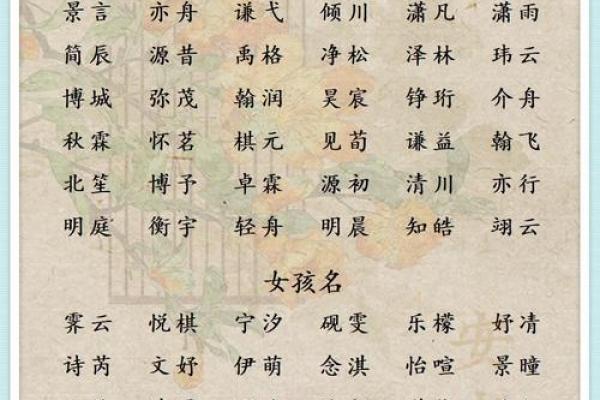 景言 亦舟 谦弋 倾川 潇凡 潇雨
简辰 源昔 禹格 净松 泽林 玮云
博城 弥茂 翰润 昊宸 铮珩 介舟
秋霖 怀茗 棋元 见荀 谦益 翰飞
北笙 博予 卓霖 源初 清川 亦行
明庭 衡宇 轻舟 明晨 知皓 翊云
女孩名
霁云 悦棋 宁汐 砚雯 乐檬 妤凊
诗芮 文妤 伊萌 念淇 怡喧 景瞳